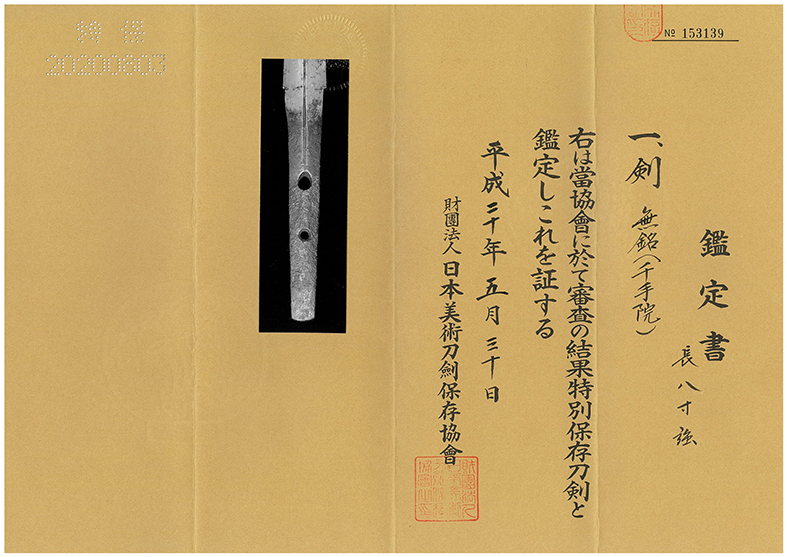 № 153139
鑑定書
長八寸強
一、剣 無銘(千手院)
右は當協會に於て審査の結果特別保存刀剣と
鑑定しこれを証する
平成二十年五月三十日
財團法人日本美術刀劍保存協會
特保